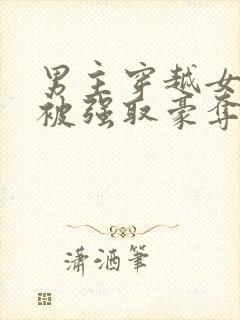 男主穿越女
被强取豪夺
潇洒笔